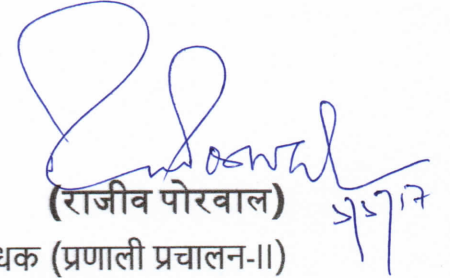 (राजीव पोरवाल)
5/5/17
धक (प्रणाली प्रचालन-II)